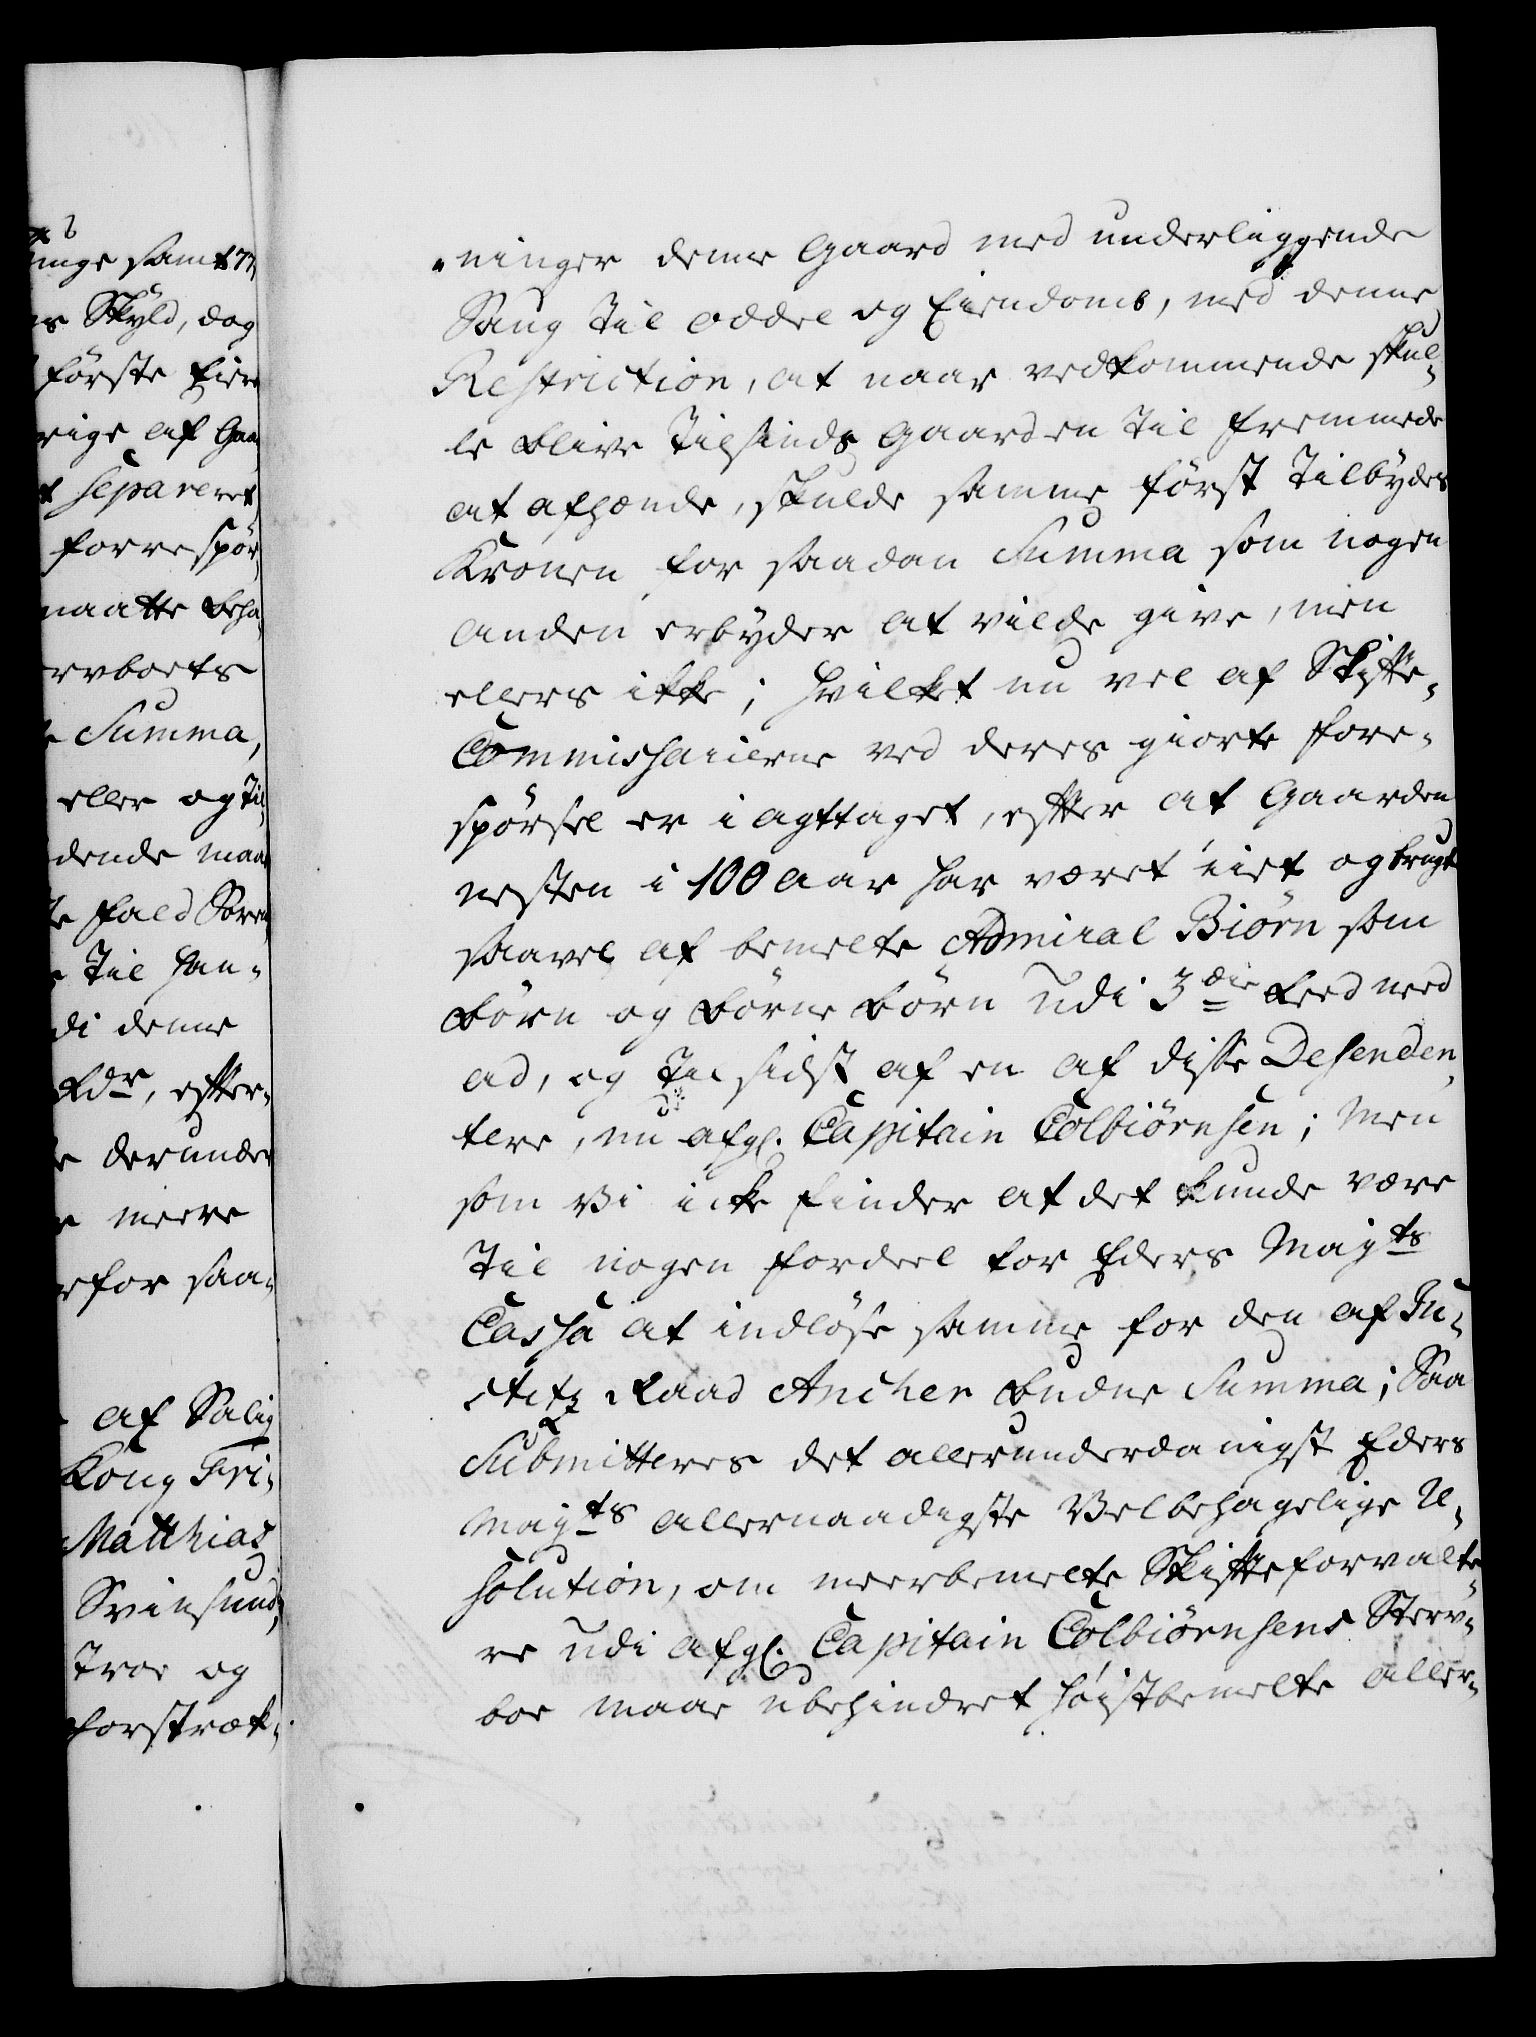 unge samt 77
s Skyld, dog
förste Eiere
rige af Gaa
t separeret
forrespör,
maatte beha
rvboets
e Summa,
eller og Til,
dende maa
te fald Sören
e Til han-
di denne
Edr, efter-
e derunder
e meere
efor saa-
af Salig
Kong Fri,
Matthias
Svinsund,
troe og
forstræk,
-ninger denne Gaard med underliggende
Saug til oddel og Eiendomb, med denne
Restriction, at naar vedkommende skul,
le blive Tilsinds Gaarden til fremmede
at afhænde, skulde samme först Tilbydes
Kronen for saadan Summa som nogen
anden erbyder at vilde give, men
ellers ikke; hvilket nu vel af Skifte-
Commissairerne ved deres giorte fore-
spörsel er i agttaget, efter at Gaarden
nesten i 100 Aar har været eiet og brugt
saavel af bemelte Admiral Biörn som
börn og börne börn udi 3die Leed ned
ad, og Til sidst af en af disse Desenden,
tere, nu afgl. Capitain Colbiörnsen; Men
som Vi icke finder at det kunde være
Til nogen fordeel for Eders Mayts
Cassa at indlöse samme for den af Ju-
stitz Raad Ancher budne Summa; Saa
Submitteres det allerunderdanigst Eders
Mayts allernaadigste Velbehagelige Re-
solution, om meerbemelte Skifteforvalte-
re udi afgl. Capitain Colbiörnsens Sterv-
boe maae ubehindret höistbemelte aller-